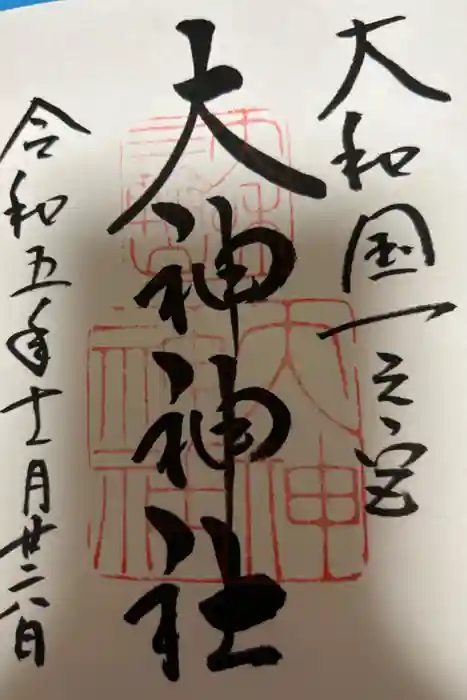 大和国一之宮
大神神社
令和五年十一月廿六日
大神神社